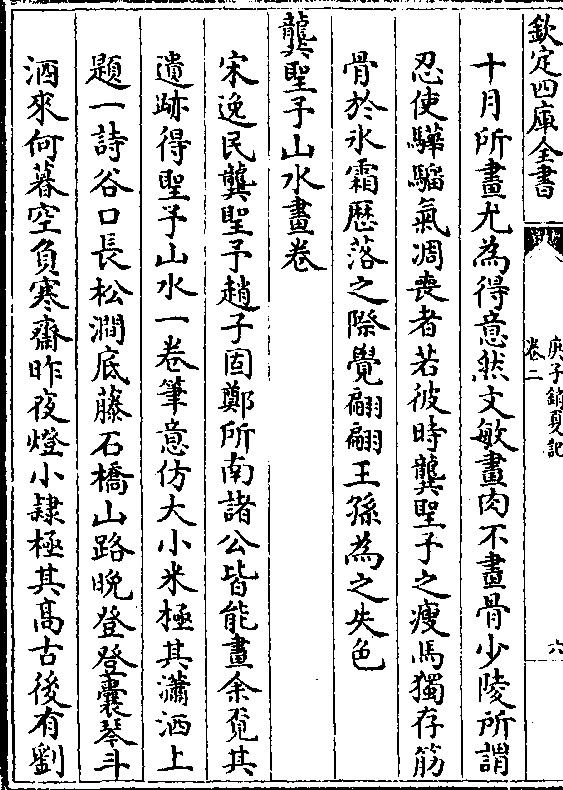 欽定四庫全書
庚子銷夏記
卷二
六
十月所畫尤為得意然文敏畫肉不畫骨少陵所謂
忍使驊騮氣凋喪者若彼時龔聖予之瘦馬獨存筋
骨於氷霜歴落之際覺翩翩王孫為之失色
龔聖予山水畫卷
宋逸民龔聖予趙子固鄭所南諸公皆能畫余覓其
遺跡得聖予山水一卷筆意仿大小米極其瀟洒上
題一詩谷口長松澗底藤石橋山路晚登登囊琴斗
酒來何暮空負寒齋昨夜燈小隷極其髙古後有劉